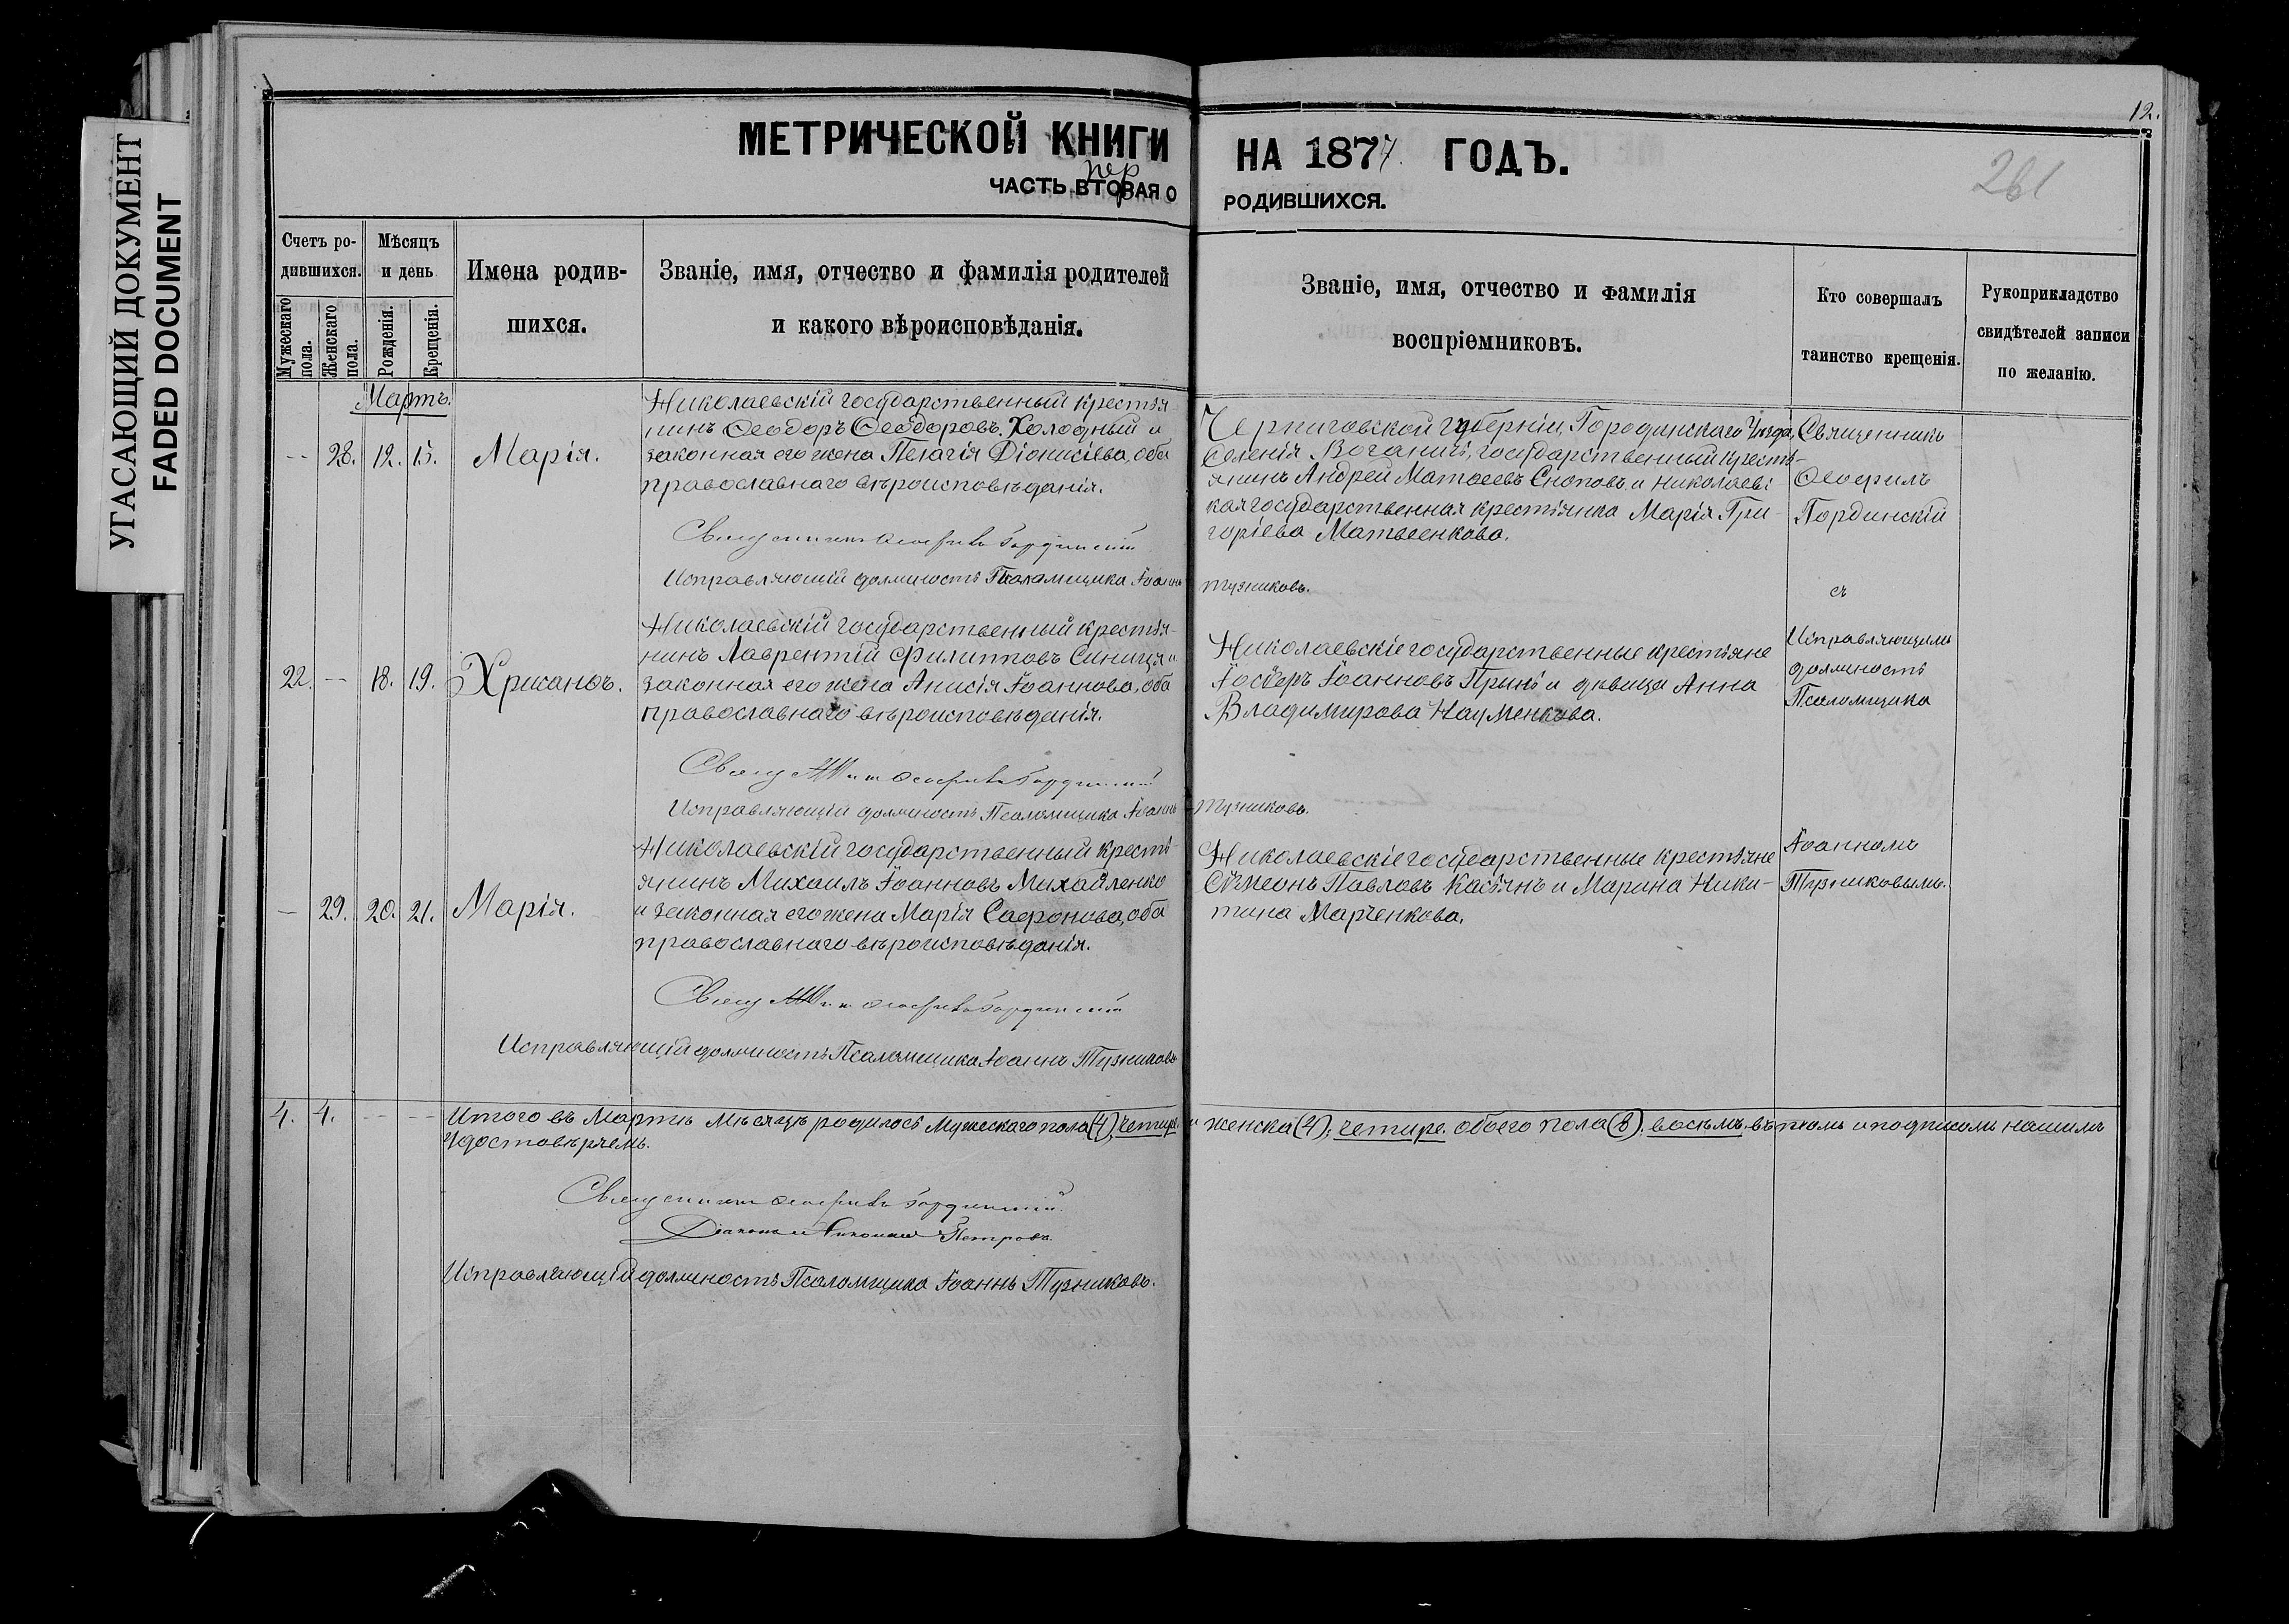 УГАСАЮЩИЙ ДОКУМЕНТ
FADED DOCUMENT
МЕТРИЧЕСКОЙ КНИГИ
пер
ЧАСТЬ ВТОРАЯ О
Счетъ ро-
дившихся.
Мужескаго
пола.
Женскаго
пола.
Мѣсяцъ
и день
Рожденія.
Крещенія.
Имена родив-
шихся.
Званіе, имя, отчество и фамилія родителей
и какого вѣроисповѣданія.
Мартъ.
-- 28. 12. 13. Марія.
Николаевскій государственный крестья-
нинъ Ѳеодоръ Ѳеодоровъ Холодный и
законная его жена Пелагія Діонисіева, оба
православнаго вѣроисповѣданія.
Священникъ Ѳеофилъ Гординскій
Исправляющій должность Псаломщика Іоаннъ
22. — 18. 19. Хрисанѳъ.
Николаевскій государственный крестья-
нинъ Лаврентій Филипповъ Синица и
законная его жена Анисія Іоаннова, оба
православнаго вѣроисповѣданія.
Священникъ Ѳеофилъ Гординскій
Исправляющій должность Псаломщика Іоаннъ
— 29. 20. 21. Марія.
Николаевскій государственный кресть-
янинъ Михаилъ Іоанновъ Михайленко
и законная его жена Марія Сафронова, оба
православнаго вѣроисповѣданія.
Священникъ Ѳеофилъ Гординскій
Исправляющій должность Псаломщика Іоаннъ Тузниковъ
4. 4. -- -- Итого въ Мартѣ мѣсяцѣ родилось мужескаго пола (4), четыре
удостовѣряемъ.
Священникъ Ѳеофилъ Гординскій
Діаконъ Николай Петровъ
Исправляющій должность Псаломщика Іоаннъ Тузниковъ.
12.
НА 1877. ГОДЪ.
261
РОДИВШИХСЯ.
Званіе, имя, отчество и фамилія
воспріемниковъ.
Кто совершалъ
таинство крещенія.
Рукоприкладство
свидѣтелей записи
по желанію.
Черниговской губерніи, Городнскаго Уѣзда,
Селенія государственный кресть-
янинъ Андрей Матѳеевъ Сноповъ и Николаевс
кая государственная крестьянка Марія Гри-
горіева Матвеенкова.
Тузниковъ.
Николаевскіе государственные крестьяне
Іоанновъ и дѣвица Анна
Владимирова Науменкова.
Тузниковъ.
Николаевскіе государственные крестьяне
Сѵмеонъ Павловъ Касьянъ и Марина Ники-
тина Марченкова.
и женска (4), четыре. обоего пола (8), восьмъ. въ томъ и подписомъ нашимъ
Священникъ
Ѳеофилъ
Гординскій
съ
Исправляющимъ
должность
Псаломщика
Іоанномъ
Тузниковымъ.